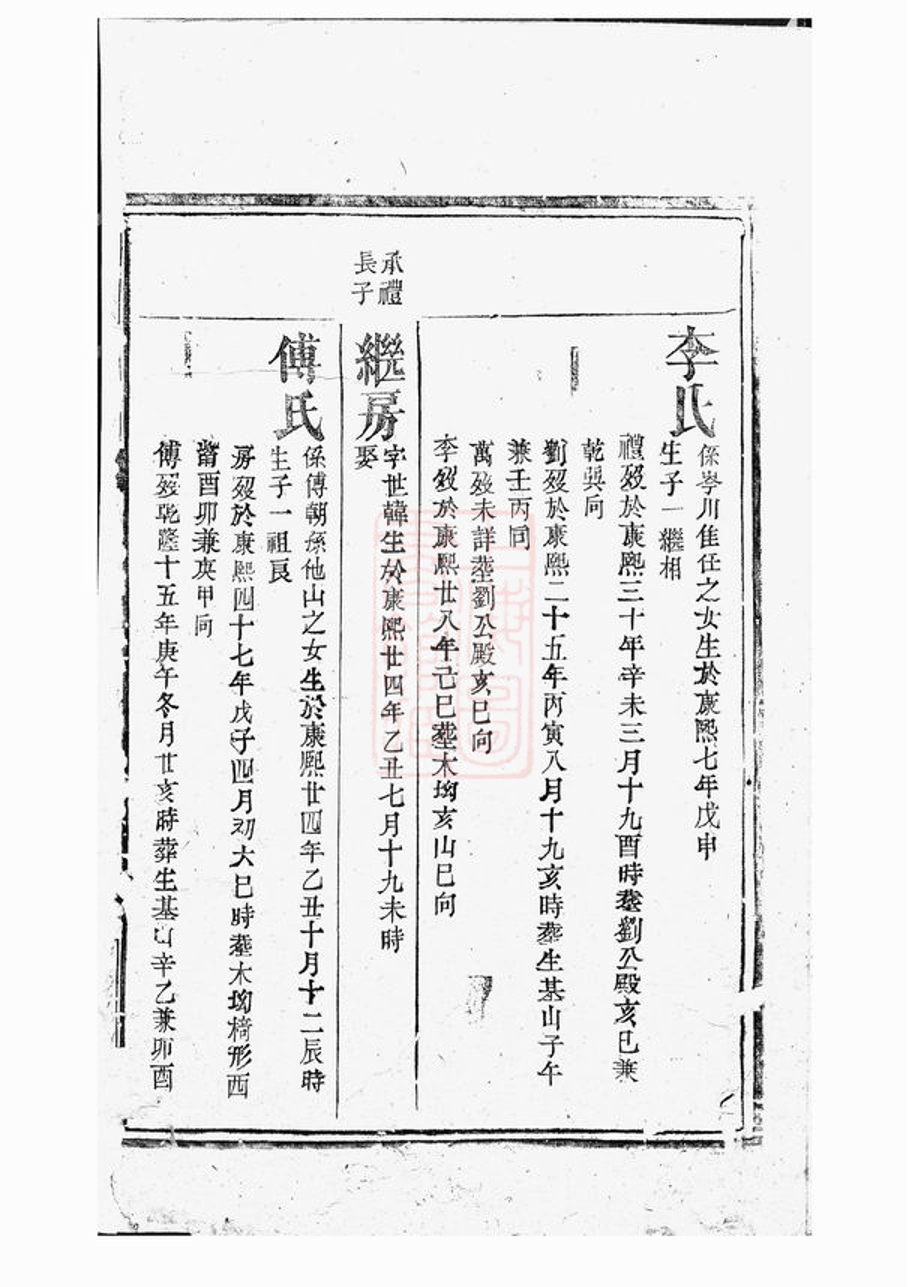 李氏
係岑川隹任之女生於康熙七年戊申
生子一繼相
禮歿於康熙三十年辛未三月十九酉時塟劉公殿亥巳兼
乾巽向
劉歿於康熙二十五年丙寅八月十九亥時塟生基山子午
兼壬丙向
萬歿未詳塟劉公殿亥巳向
李歿於康熙廿八年己巳塟木坳亥山巳向
承禮
長子
繼房
字世韓生於康熙廿四年乙丑七月十九未時
娶
傅氏
係傅朝孫他山之女生於康熙廿四年乙丑十月十二辰時
生子一祖良
房歿於康熙四十七年戊子四月初六巳時塟木坳椅形西
酉卯兼庚甲向
傅歿乾隆十五年庚午冬月廿亥時葬生基山辛乙兼卯酉